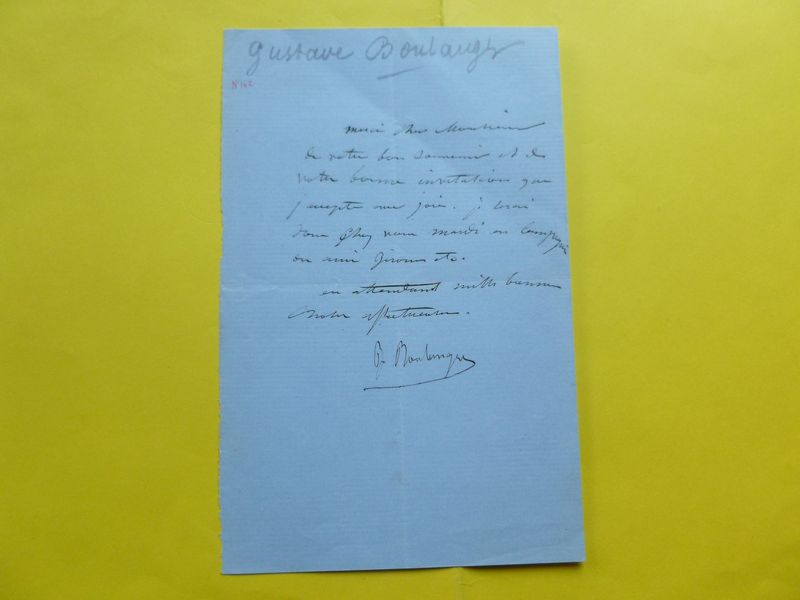 Gustave Boulanger
N° 142
merci cher Monsieur
de votre bon souvenir et de
votre bonne invitation que
j'accepte avec joie. je serai
donc chez vous mardi en compagnie
du ami Gérome etc.
en attendant mille bonnes
choses affectueuses.
G. Boulanger